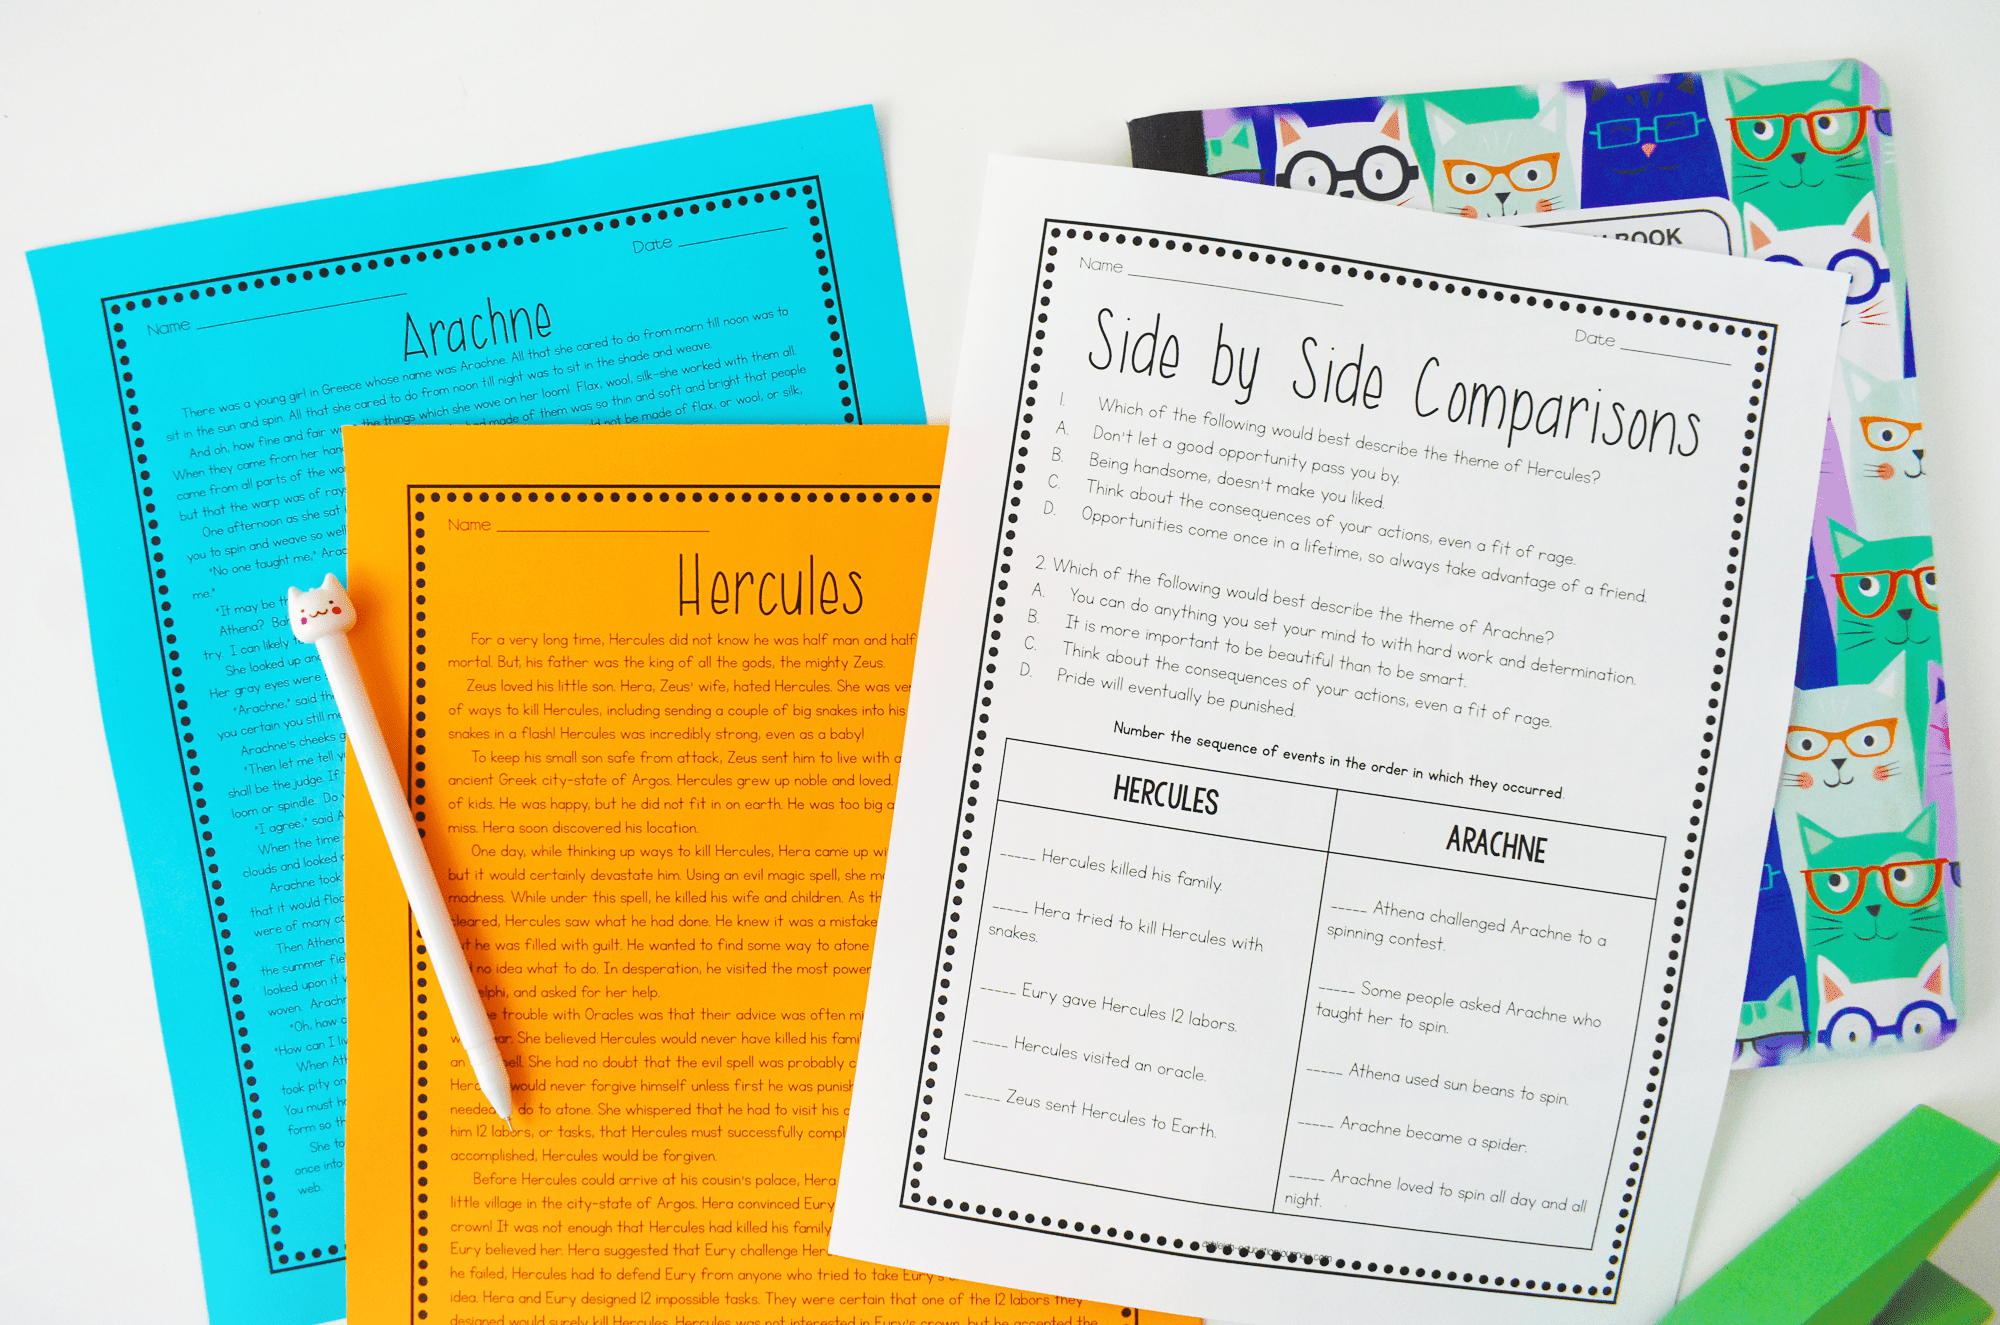 Name
Date
Arachne
There was a young girl in Greece whose name was Arachne. All that she cared to do from morn till noon was to
sit in the sun and spin. All that she cared to do from noon till night was to sit in the shade and weave.
And oh, how fine and fair
the things which she wove on her loom! Flax, wool, silk-she worked with them all.
When they came from her
made of them was so thin and soft and bright that people
came from all parts of the
not be made of flax, or wool, or silk,
but that the warp was of
One afternoon as she sat
you to spin and weave so well
"No one taught me,"
me."
"It may be
Athena?
try. I can likely
She looked up and
Her gray eyes were
"Arachne," said
you certain you still
Arachne's cheeks
"Then let me tell
shall be the judge. If
loom or spindle. Do
"I agree," said
When the time
clouds and looked
Arachne took
that it would
were of many
Then Athena
the summer
looked upon it
woven.
"Oh, how
"How can I
When
took pity on
You must
form so
She
once into
web.
Name
Hercules
For a very long time, Hercules did not know he was half man and half
mortal. But, his father was the king of all the gods, the mighty Zeus.
Zeus loved his little son. Hera, Zeus' wife, hated Hercules. She was
of ways to kill Hercules, including sending a couple of big snakes into his
snakes in a flash! Hercules was incredibly strong, even as a baby!
To keep his small son safe from attack, Zeus sent him to live with
ancient Greek city-state of Argos. Hercules grew up noble and loved.
of kids. He was happy, but he did not fit in on earth. He was too big
miss. Hera soon discovered his location.
One day, while thinking up ways to kill Hercules, Hera came up
but it would certainly devastate him. Using an evil magic spell, she
madness. While under this spell, he killed his wife and children. As
cleared, Hercules saw what he had done. He knew it was a mistake
he was filled with guilt. He wanted to find some way to atone
no idea what to do. In desperation, he visited the most
and asked for her help.
trouble with Oracles was that their advice was often
She believed Hercules would never have killed his
She had no doubt that the evil spell was probably
would never forgive himself unless first he was
needed do to atone. She whispered that he had to visit his
him 12 labors, or tasks, that Hercules must successfully
accomplished, Hercules would be forgiven.
Before Hercules could arrive at his cousin's palace, Hera
little village in the city-state of Argos. Hera convinced Eury
crown! It was not enough that Hercules had killed his family
Eury believed her. Hera suggested that Eury challenge
he failed, Hercules had to defend Eury from anyone who tried to take Eury's
idea. Hera and Eury designed 12 impossible tasks. They were certain that one of the 12 labors they
designed would surely kill Hercules. Hercules was not interested in Eury's crown, but he accepted the
BOOK
Name
Date
Side by Side Comparisons
1. Which of the following would best describe the theme of Hercules?
A. Don't let a good opportunity pass you by.
B. Being handsome, doesn't make you liked.
C. Think about the consequences of your actions, even a fit of rage.
D. Opportunities come once in a lifetime, so always take advantage of a friend.
2. Which of the following would best describe the theme of Arachne?
A. You can do anything you set your mind to with hard work and determination.
B. It is more important to be beautiful than to be smart.
C. Think about the consequences of your actions, even a fit of rage.
D. Pride will eventually be punished.
Number the sequence of events in the order in which they occurred.
HERCULES
_____ Hercules killed his family.
_____ Hera tried to kill Hercules with
snakes.
_____ Eury gave Hercules 12 labors.
_____ Hercules visited an oracle.
_____ Zeus sent Hercules to Earth.
ARACHNE
_____ Athena challenged Arachne to a
spinning contest.
_____ Some people asked Arachne who
taught her to spin.
_____ Athena used sun beans to spin.
_____ Arachne became a spider.
_____ Arachne loved to spin all day and all
night.